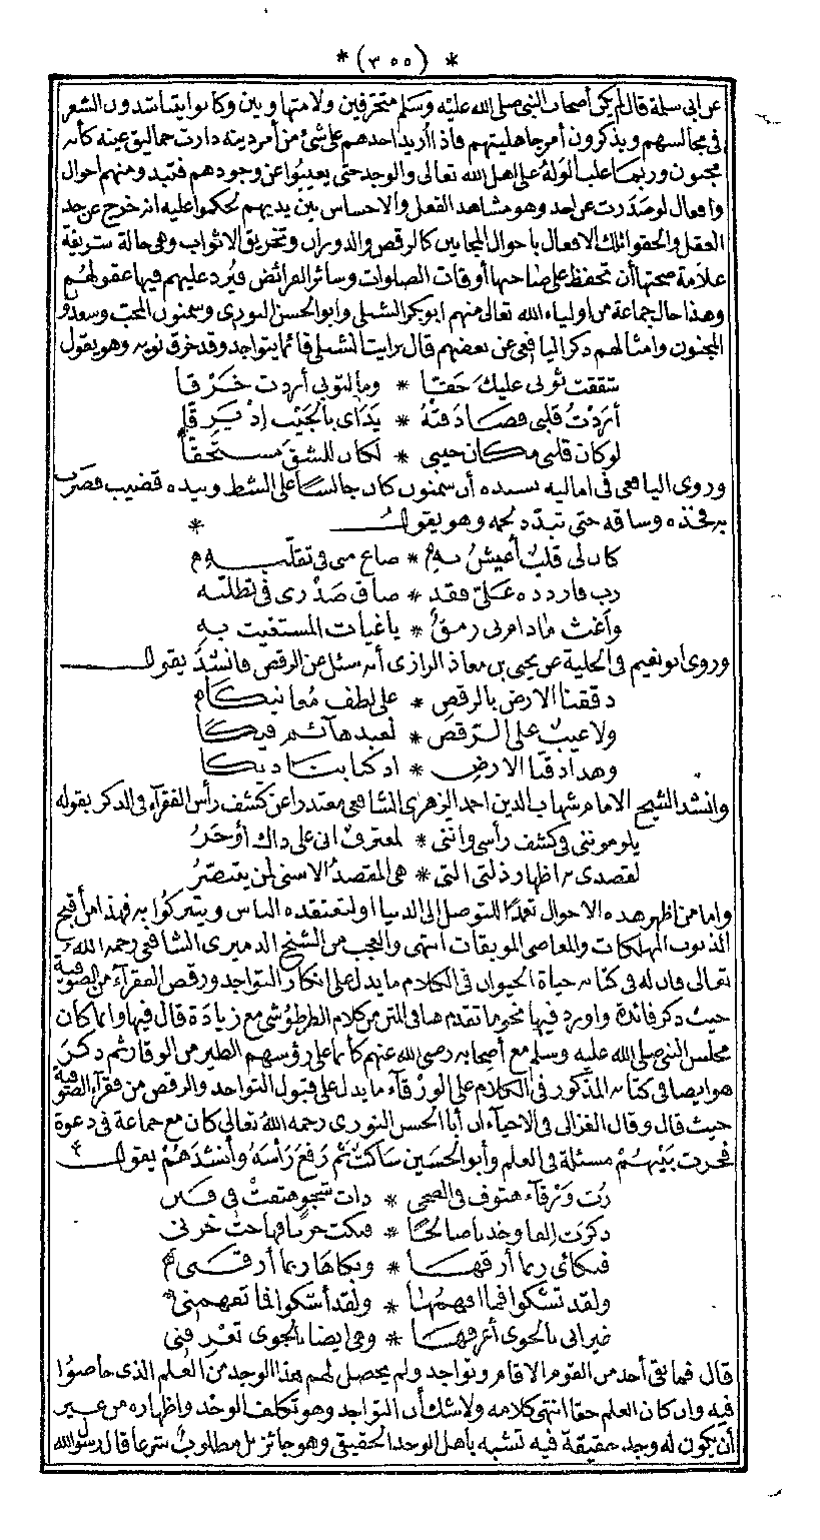 * (٣٥٥) *
عن أبي سلمة قال لم يكن أصحاب النبي صلى الله عليه وسلم متحزقين ولا متماوتين وكانوا يتناشدون الشعر
في مجالسهم ويذكرون أمر جاهليتهم فاذا أريد أحدهم على شئ من أمر دينه دارت حماليق عينه كأنه
مجنون وربما غلب الوله على اهل الله تعالى والوجد حتى يغيبوا عن وجودهم فتبدو منهم احوال
وافعال لو صدرت عن احد وهو مشاهد الفعل والاحساس بين يديهم لحكموا عليه انه خرج عن حد
العقل والحقوا تلك الافعال باحوال المجانين كالرقص والدوران وتخريق الاثواب وهي حالة شريفة
علامة صحتها أن تحفظ على صاحبها أوقات الصلوات وسائر الفرائض فيرد عليهم فيها عقولهم
وهذا حال جماعة من اولياء الله تعالى منهم ابو بكر الشبلي وابو الحسن النوري وسمنون المحب وسعدون
المجنون وامثالهم ذكر اليافعي عن بعضهم قال رايت الشبلي قائما يتواجد وقد خرق ثوبه وهو يقول
شققت ثوبي عليك حقا * وما لثوبي أردت خرقا
أردت قلبي فصادفته * يداي بالجيب اذ يرقا
لو كان قلبي مكان جيبي * لكان للشق مستحقا
وروى اليافعي في اماليه بسنده أن سمنون كان جالسا على الشط وبيده قضيب فضرب
به فخذه وساقه حتى تبدد لحمه وهو يقول *
كان لي قلب أعيش به * ضاع مني في تقلبه
رب فاردده علي فقد * ضاق صدري في تطلبه
وأغث مادام لي رمق * ياغياث المستغيث به
وروى ابو نعيم في الحلية عن يحيى بن معاذ الرازي أنه سئل عن الرقص فانشد يقول
دققنا الارض بالرقص * على لطف معانيكا
ولا عيب على الرقص * لعبد هائم فيكا
وهذا دقنا الارض * اذ كنا بناديكا
وانشد الشيخ الامام شهاب الدين احمد الزهري الشافعي معتذرا عن كشف رأس الفقراء في الذكر بقوله
يلومونني في كشف رأسي وانني * لمعترف اني على ذاك أوجر
لقصدي به اظهار ذلتي التي * هي المقصد الاسنى لمن يتبصر
واما من اظهر هذه الاحوال تعمدا للتوصل الى الدنيا او لتعتقده الناس ويتبركوا به فهذا من أقبح
الذنوب المهلكات والمعاصي الموبقات انتهى والعجب من الشيخ الدميري الشافعي رحمه الله
تعالى فان له في كتابه حياة الحيوان في الكلام ما يدل على انكار التواجد ورقص الفقراء من الصوفية
حيث ذكر فائدة واورد فيها نحو ما تقدم هنا في المتن من كلام الطرطوشي مع زيادة قال فيها وانما كان
مجلس النبي صلى الله عليه وسلم مع أصحابه رضي الله عنهم كأنما على رؤسهم الطير من الوقار ثم ذكر
هو ايضا في كتابه المذكور في الكلام على الورقاء ما يدل على قبول التواجد والرقص من فقراء الصوفية
حيث قال وقال الغزالي في الاحياء ان أبا الحسن النوري رحمه الله تعالى كان مع جماعة في دعوة
فجرت بينهم مسئلة في العلم وأبو الحسين ساكت ثم رفع رأسه وأنشدهم يقول
رب ورقاء هتوف في الضحى * ذات شجو هتفت في فنن
ذكرت إلفا وخدنا صالحا * فبكت حزنا فهاجت حزني
فبكائي ربما أرقها * وبكاها ربما أرقني
ولقد تشكوا فما افهمها * ولقد أشكوا فما تفهمني
غير اني بالجوى أعرفها * وهي ايضا بالجوى تعرفني
قال فما بقي أحد من القوم الا قام وتواجد ولم يحصل لهم هذا الوجد من العلم الذي خاضوا
فيه وان كان العلم حقا انتهى كلامه ولا شك أن التواجد وهو تكلف الوجد واظهاره من غير
أن يكون له وجد حقيقة فيه تشبه باهل الوجد الحقيقي وهو جائز بل مطلوب شرعا قال رسول الله